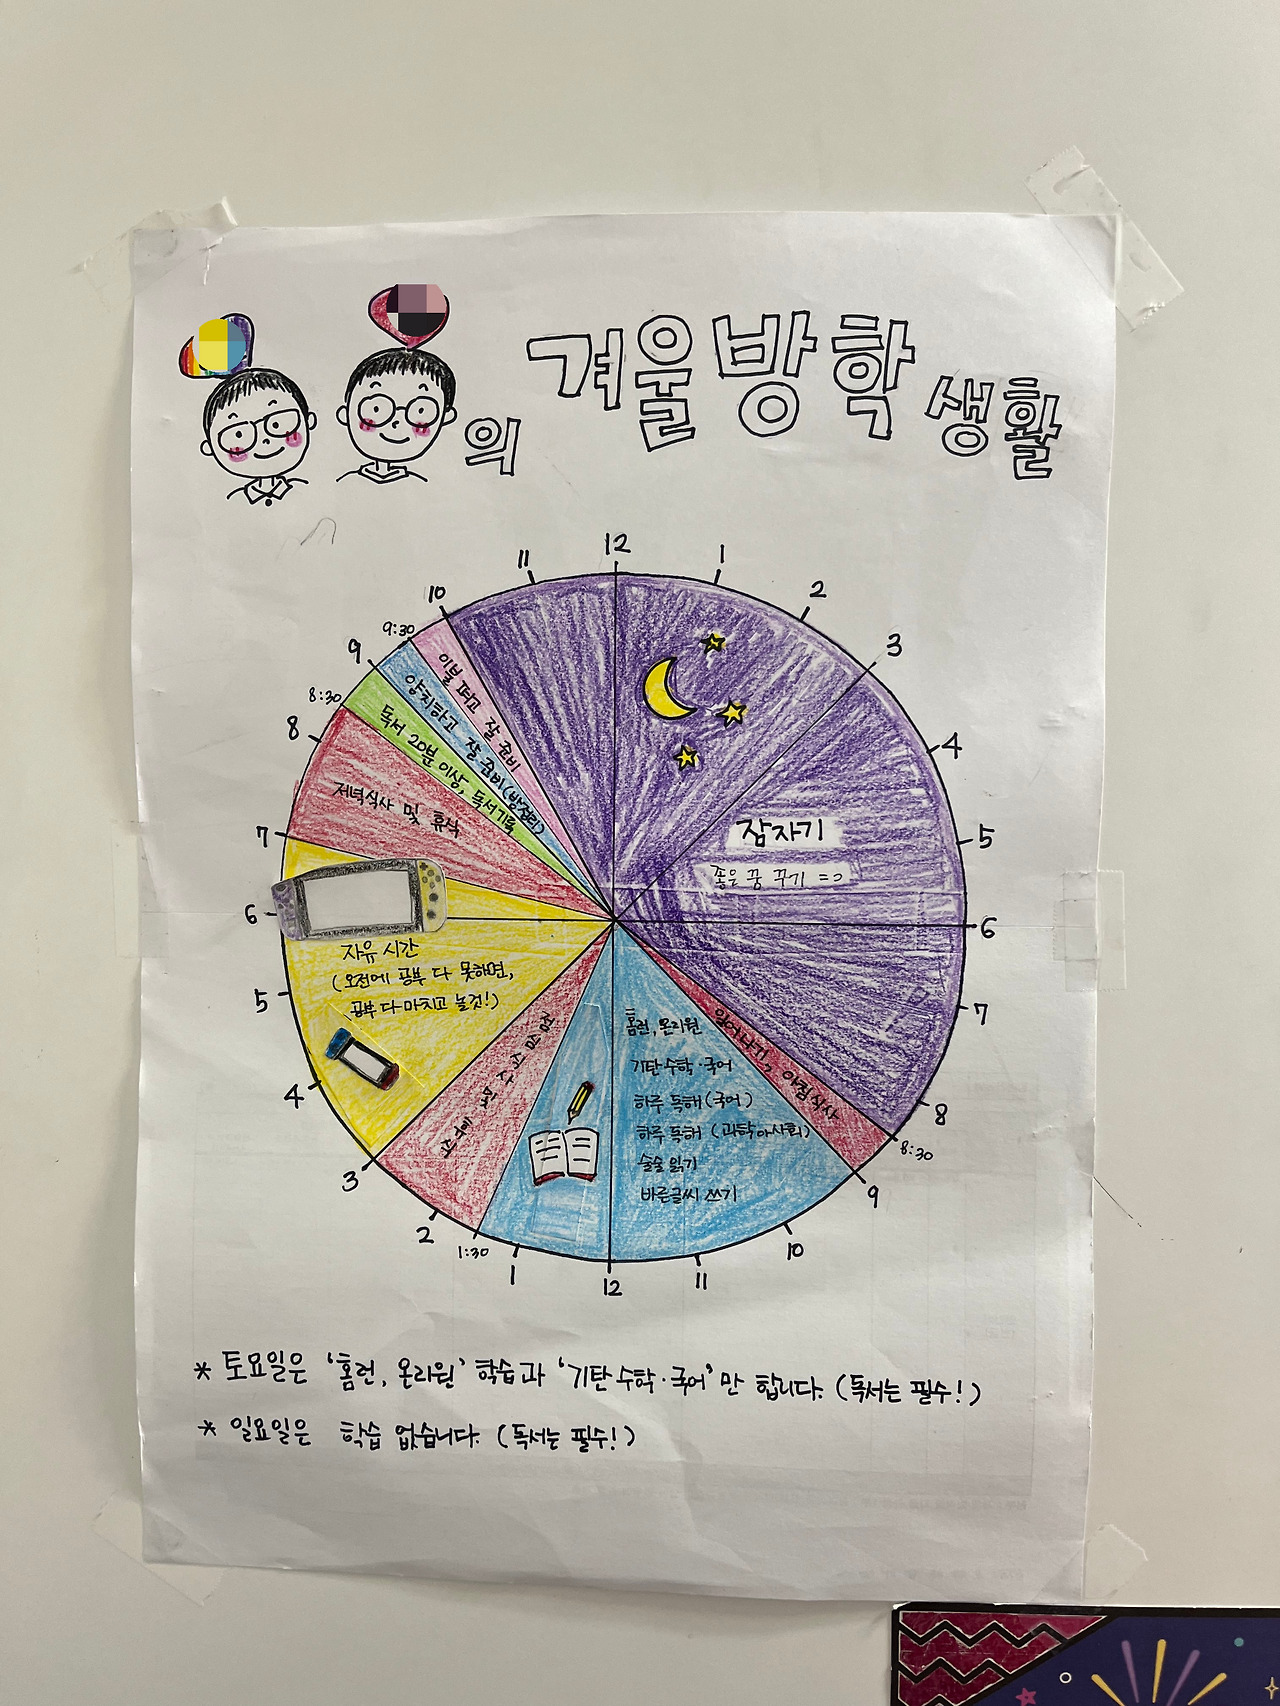 의 겨울방학 생활
12
1
2
3
4
5
6
7
8
8:30
9
10
11
12
1
1:30
2
3
4
5
6
7
8
8:30
9
9:30
10
11
잠자기
좋은 꿈 꾸기 =၁
일어나기, 아침식사
홈런, 온리원
기탄수학·국어
하루 독해(국어)
하루 독해 (과학아사회)
술술 읽기
바른글씨 쓰기
자유 시간
(오전에 공부 다 못하면,
공부 다 마치고 놀것!)
저녁식사 및 휴식
독서 20분 이상, 독서기록
양치하고 잘 준비(방정리)
이불 펴고 잘 준비
* 토요일은 '홈런, 온리원' 학습과 '기탄수학·국어'만 합니다. (독서는 필수!)
* 일요일은 학습 없습니다. (독서는 필수!)